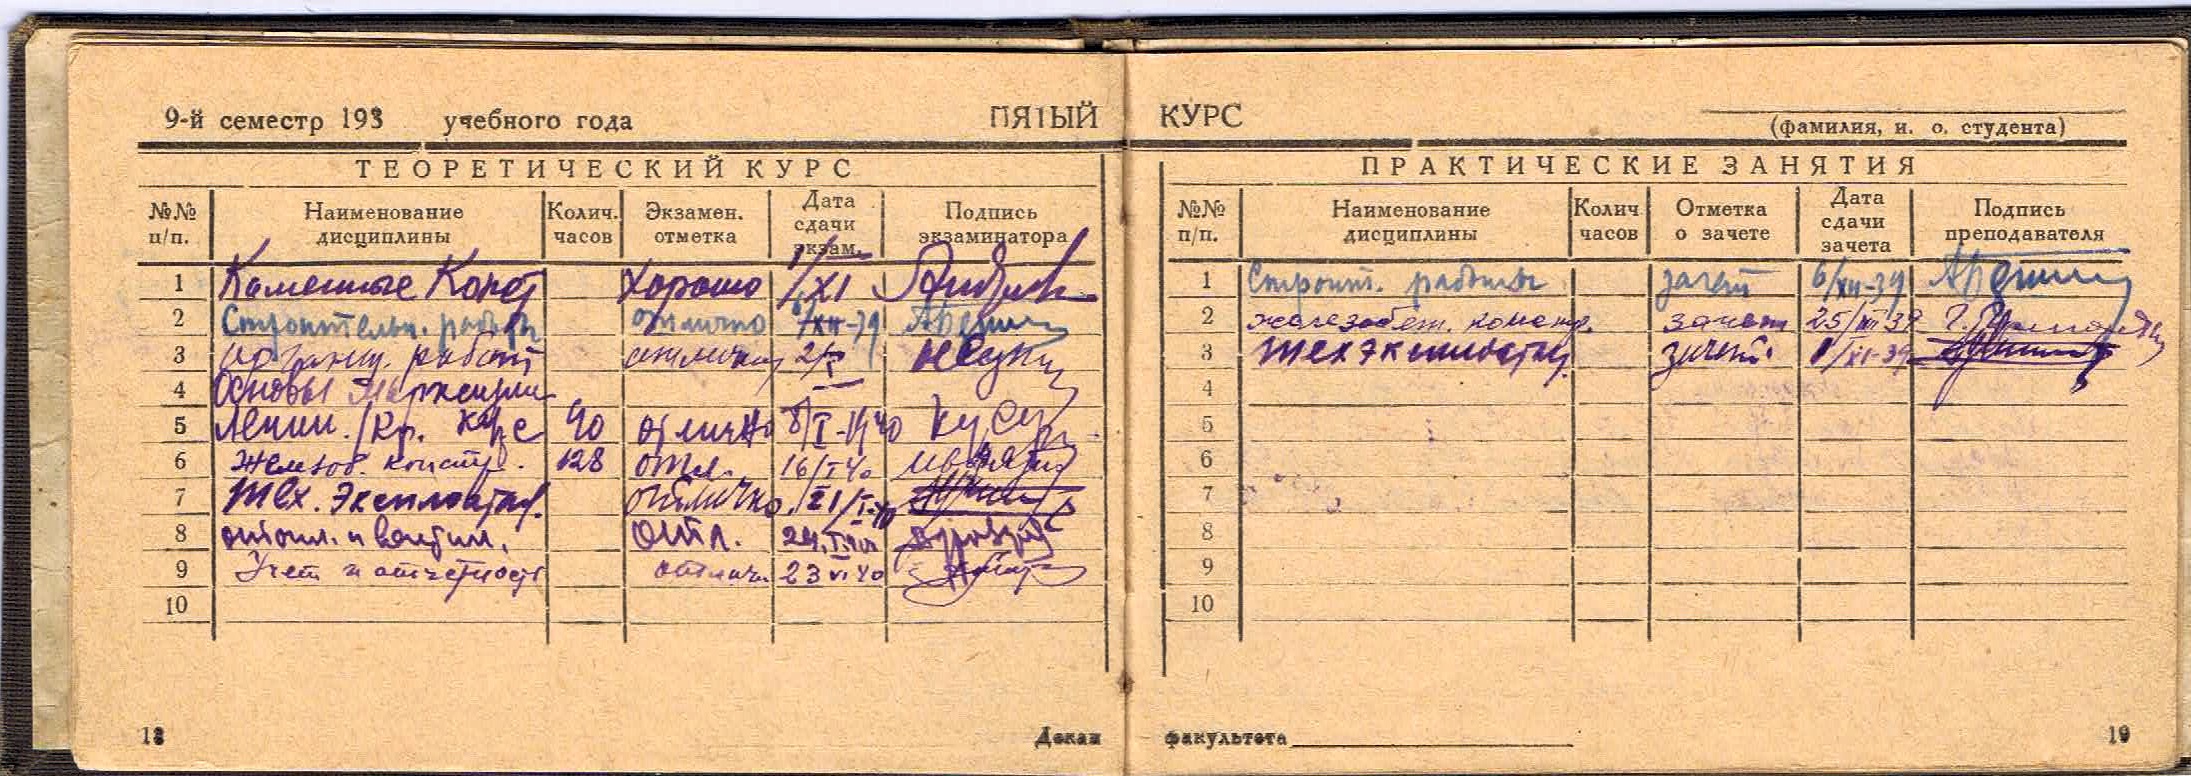 9-й семестр 193 учебного года ПЯТЫЙ КУРС
(фамилия, и. о. студента)
ТЕОРЕТИЧЕСКИЙ КУРС
№№ п/п. Наименование дисциплины Колич. часов Экзамен. отметка Дата сдачи экзам. Подпись экзаминатора
1 Каменные Конст хорошо 1/XI
2 Строительн. работы отлично 6/XII-39
3 организ. работ отлично 2/I
4 Основы Марксизма
5 Ленин./Кр. курс 90 отлично 8/I-1940
6 Железоб. констр. 128 отл. 16/I 40
7 Тех. Эксплоатац. отлично 21/I-40
8 отопл. и вентил. отл. 24.I.40
9 Учет и отчетность отличн. 23 VI 40
10
18 Декан
ПРАКТИЧЕСКИЕ ЗАНЯТИЯ
№№ п/п. Наименование дисциплины Колич часов Отметка о зачете Дата сдачи зачета Подпись преподавателя
1 Строит. работы зачет 6/XII-39
2 железобет. констр. зачет 25/XII 39
3 Тех Эксплоатац. зачет. 1/XI-39
4
5
6
7
8
9
10
факультета
19